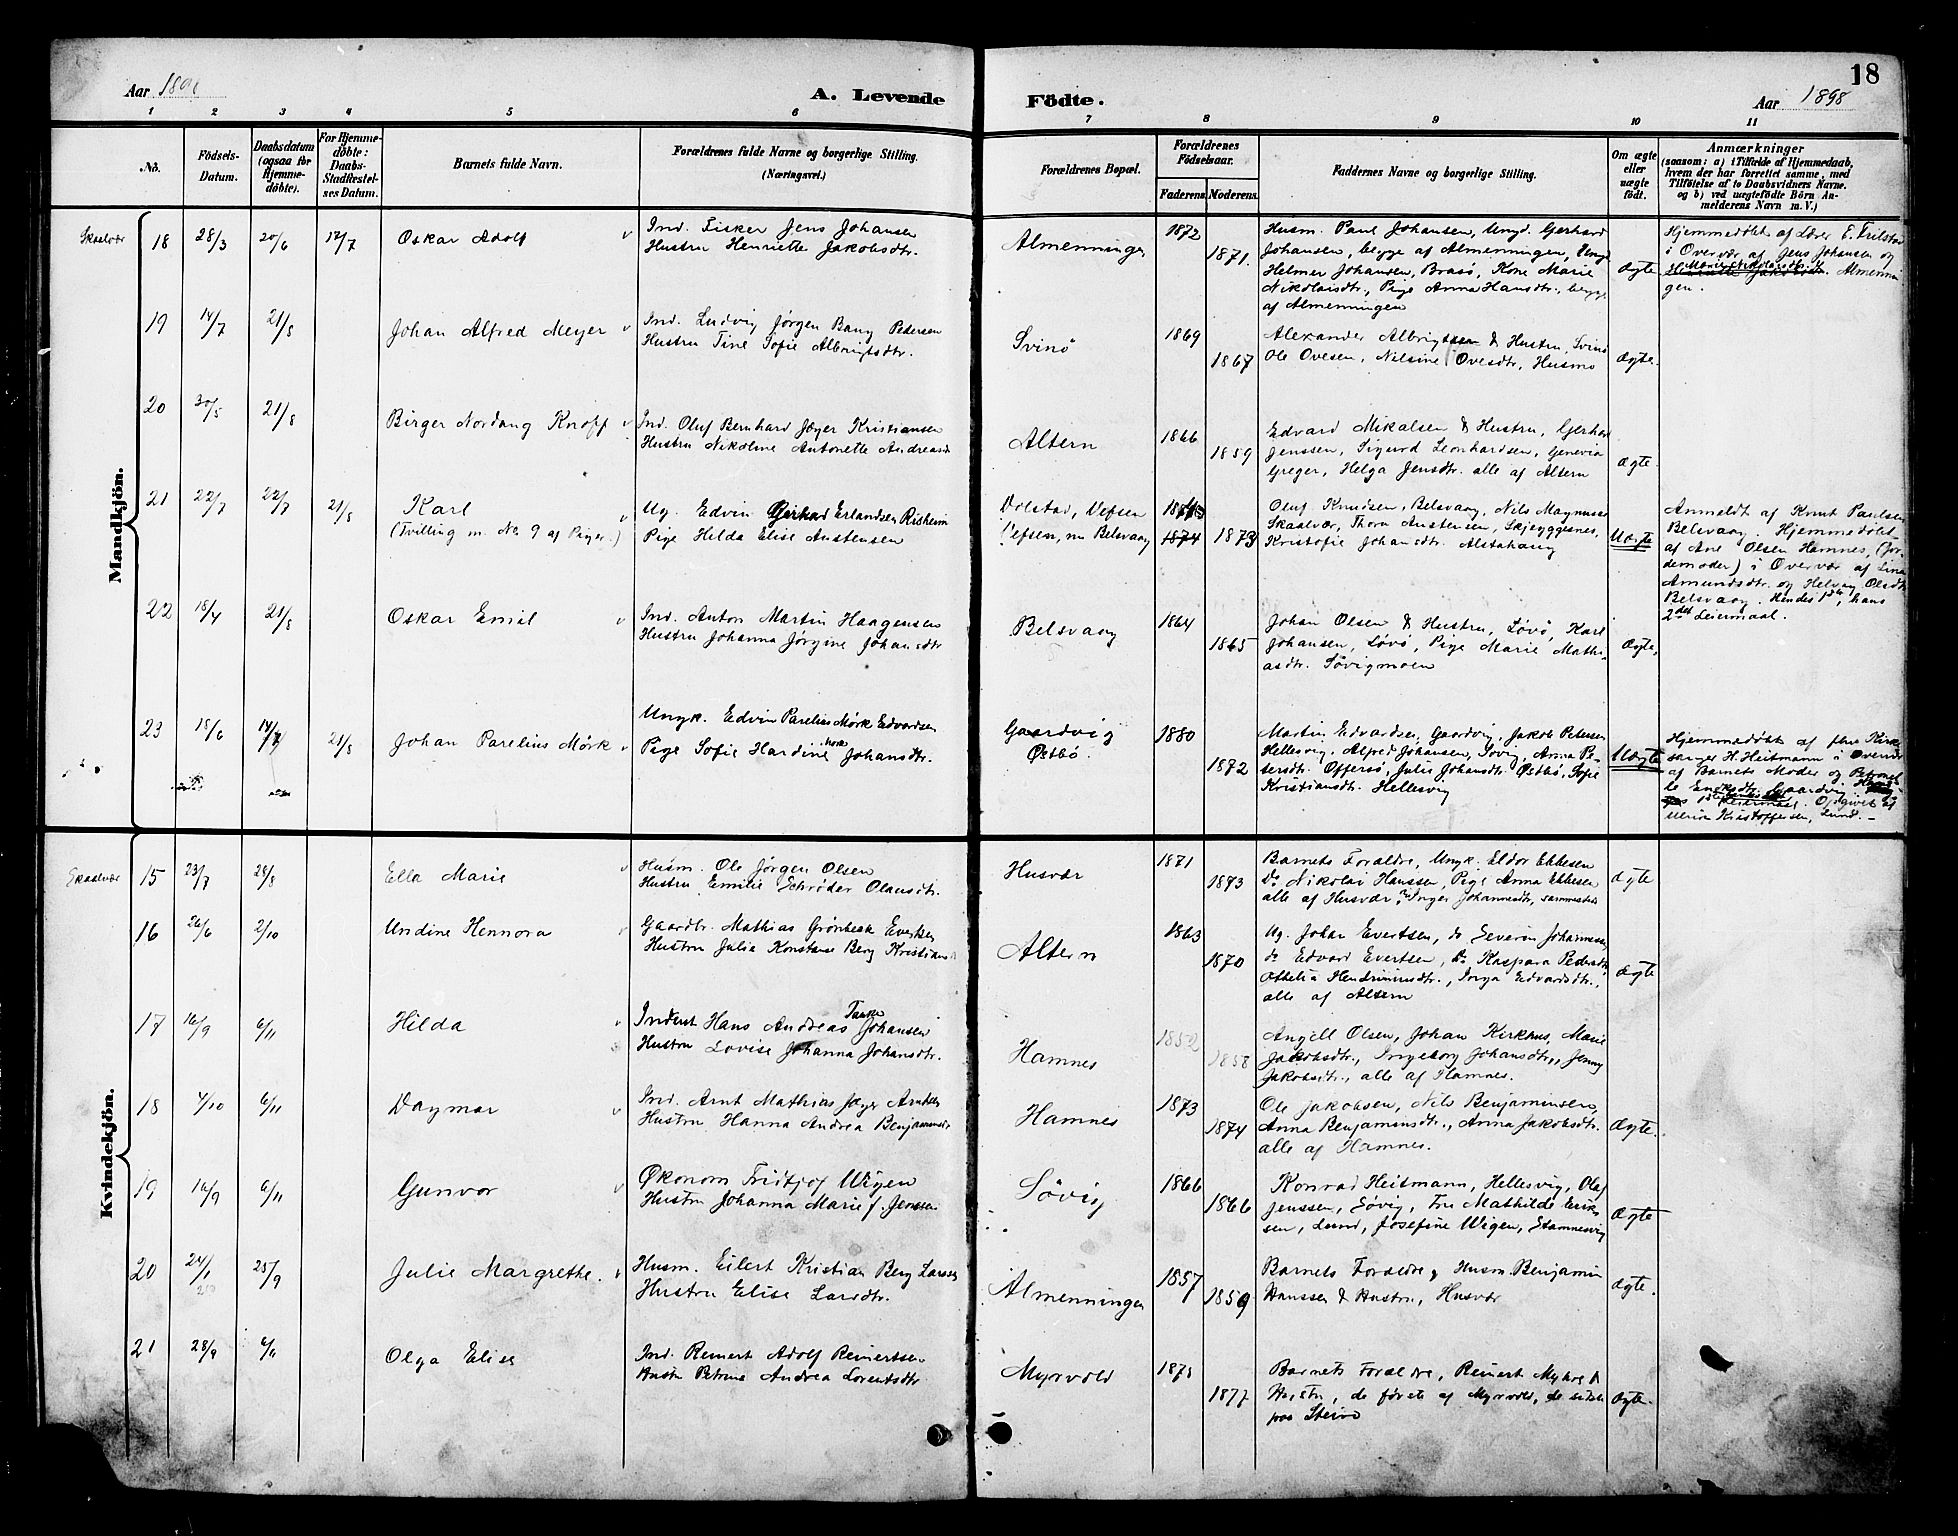 18
Aar 189
A. Levende Födte.
Aar 1898
1 2 3 4 5 6 7 8 9 10 11
No.
Födsels-Datum.
Daabsdatum (ogsaa for Hjemme-döbte).
For Hjemme-döbte: Daabs-Stadfæstel-ses Datum.
Barnets fulde Navn.
Forældrenes fulde Navne og borgerlige Stilling.
(Næringsvei.)
Forældrenes Bopæl.
Forældrenes Födselsaar.
Faderens. Moderens.
Faddernes Navne og borgerlige Stilling.
Om ægte eller uægte födt.
Anmærkninger
(saasom: a) i Tilfælde af Hjemmedaab,
hvem der har forrettet samme, med
Tilföielse af to Daabsvidners Navne.
og b) ved uægtefödte Börn An-
melderens Navn m. V.)
Mandkjön.
Skaalvær
18 28/3 20/6 17/7 Oskar Adolf
Ind. Fisker Jens Johansen
Hustru Henriette Jakobsdtr.
Almenningen
1872
1871.
Husm. Paul Johansen, Ungd. Gerhard
Johansen, begge af Almenningen, Ungd.
Helmer Johansen, Brasø, Kone Marie
Nikolaisdtr., Pige Anna Hansdtr., begge
af Almenningen
Ægte
Hjemmedöbt af Lærer E. Trilstad
i Overvær af Jens Johansen og
Marie Nikolaisdtr. Almennin
gen.
19 14/7 21/8 Johan Alfred Meyer
Ind. Ludvig Jørgen Bang Pedersen
Hustru Tine Sofie Albrigtsdtr.
Svinø
1869
1867
Alexander Albrigtsen & Hustru, Svinø
Ole Ovesen, Nilsine Ovesdtr, Husmo
Ægte.
20 30/5 21/8 Birger Nordang Knoff
Ind. Oluf Bernhard Jæger Kristiansen
Hustru Nikoline Antonette Andreasdt
Altern
1866
1859
Edvard Mikalsen & Hustru, Gerhard
Jenssen, Sigurd Leonhardsen, Genevia
Greger, Helga Jensdtr. alle af Altern
Ægte.
21 22/7 22/7 21/8 Karl
(Tvilling m. No 9 af Piger.)
Ug. Edvin Gerhard Erlandsen Risheim
Pige Hilda Elise Austensen
Dolstad, Vefsen
Vefsen, nu Belsvaag
1874 1873
Oluf Knudsen, Belsvaag, Nils Magnusen
Skaalvær, Thora Austensen, Skjeggesnes,
Kristofie Johansdtr. Alstahaug
Uægte
Anmeldt af Knut Paulsen
Belsvaag. Hjemmedöbt
af Ane Olsen Hamnes, (Jor
demoder) i Overvær af Lina
Amundsdtr. og Helvag Olsdtr
Belsvaag. Hendes 1ste, hans
2det Leiermaal.
22 18/4 21/8 Oskar Emil
Ind. Anton Martin Haagensen
Hustru Johanna Jørgine Johansdtr
Belsvaag
1864
1865
Johan Olsen & Hustru, Løvø, Karl
Johansen, Løvø, Pige Marie Mathi-
asdtr. Søvigmoen
Ægte,
23 18/6 14/7 21/8 Johan Parelius Mørk
Ungk. Edvin Parelius Mørk Edvardsen
Pige Sofie Hardine Johansdtr.
Gaardvig
Østbø.
1880
1872
Martin Edvardsen, Gaardvig, Jakob Petersen
Hellesvig, Alfred Johansen, Søvig, Anna Pe-
tersdtr. Offersø, Julie Johansdtr. Østbø, Sofie
Kristiansdtr. Hellesvig
Uægte
Hjemmedöbt af fhv. Kirk
sanger H. Heitmann i Overvær
af Barnets Moder og Petronel
le Gaardvig
Opgivet af
Kristoffersen, Lund.
Kvindekjön.
Skaalvær
15 23/7 28/8 Ella Marie
Husm. Ole Jørgen Olsen
Hustru Emilie Schrøder Olausdtr.
Husvær
1871
1873
Barnets Forældre, Ungk. Eldor Ebbesen
Do. Nikolai Hanssen, Pige Anna Ebbesen
alle af Husvær, Inger Johannesdtr, sammesteds
Ægte
16 26/6 2/10 Undine Hennora
Gaardbr. Mathias Grønbech Evertsen
Hustru Julia Konstanse Berg Kristians
Altern
1863
1870
Ug. Johan Evertsen, do Severin Johannessen
do Edvard Evertsen, Do Kaspara Pedersdtr
Othelia Hendriksdtr., Inga Edvardsdtr.,
alle af Altern
Ægte
17 16/9 6/11 Hilda
Inderst Hans Andreas Tanke Johansen
Hustru Lovise Johanna Johansdtr.
Hamnes
1852
1858
Angell Olsen, Johan Kirkhus, Marie
Jakobsdtr., Ingeborg Johansdtr., Jenny
Jakobsdtr., alle af Hamnes.
18 4/10 6/11 Dagmar
Ind. Arnt Mathias Jæger Arntsen
Hustru Hanna Andrea Benjaminsdt
Hamnes
1873
1874
Ole Jakobsen, Nils Benjaminsen,
Anna Benjaminsdtr., Anna Jakobsdtr.
alle af Hamnes.
Ægte.
19 16/9 6/11 Gunvor
Økonom Fridtjof Wigen
Hustru Johanna Marie f. Jenssen
Søvig
1866
1866
Konrad Heitmann, Hellesvig, Olaf
Jenssen, Søvig, Fru Mathilde Erik
sen, Lund, Josefine Wigen, Stamnesvig
Ægte
20 24/1 25/9 Julie Margrethe.
Husm. Eilert Kristian Berg Larssen
Hustru Elise Larsdtr.
Almenningen
1857
1859
Barnets Forældre, Husm. Benjamin
Hanssen & Hustru, Husvær
Ægte.
21 28/9 6/11 Olga Elise
Ind. Reinert Adolf Reinertsen
Hustr Petrine Andrea Lorentsdtr.
Myrvold
1871
1877
Barnets Forældre, Reinert Myhre &
Hustr, de første af Myrvold, de sidste
paa Steinø
Ægte.